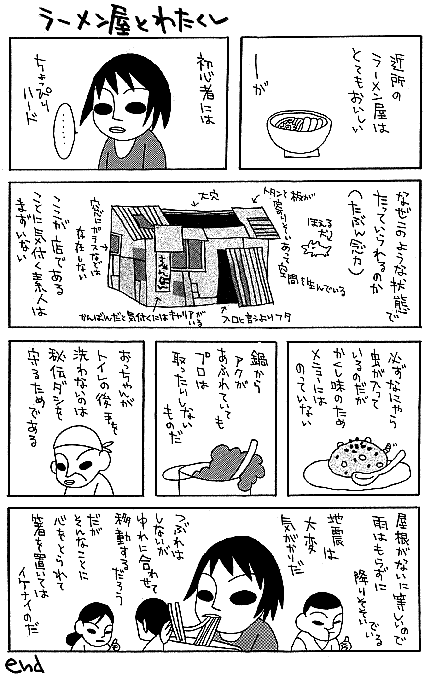 ラーメン屋とわたくし
近所の
ラーメン屋は
とてもおいしい
―が
初心者には
ちょぴり
ハード
……
なぜこのような状態で
たっていられるのか
(たぶん念力)
トタンと板が
寄りそいあって
空間を生んでいる
ほえる
だけ
大穴
窓にガラスなぞは
存在しない
かんばんだと気付くにはキャリアがいる
入口と言うよりフタ
ここが店である
ことに気付く素人は
まずいない
必ずなにやら
虫が入って
いるのだが
かくし味のため
メニューには
のっていない
鍋から
アクが
あふれていても
プロは
取ったりしない
ものだ
おっちゃんが
トイレの後手を
洗わないのは
秘伝ダシを
守るためである
屋根がないに等しいので
雨はもらずに
降りそそいでいる
地震は
大変
気がかりだ
つぶれは
しないが
ゆれに合わせて
移動するだろう
だが
そんなことに
心をとられて
箸を置いては
イケナイのだ
end